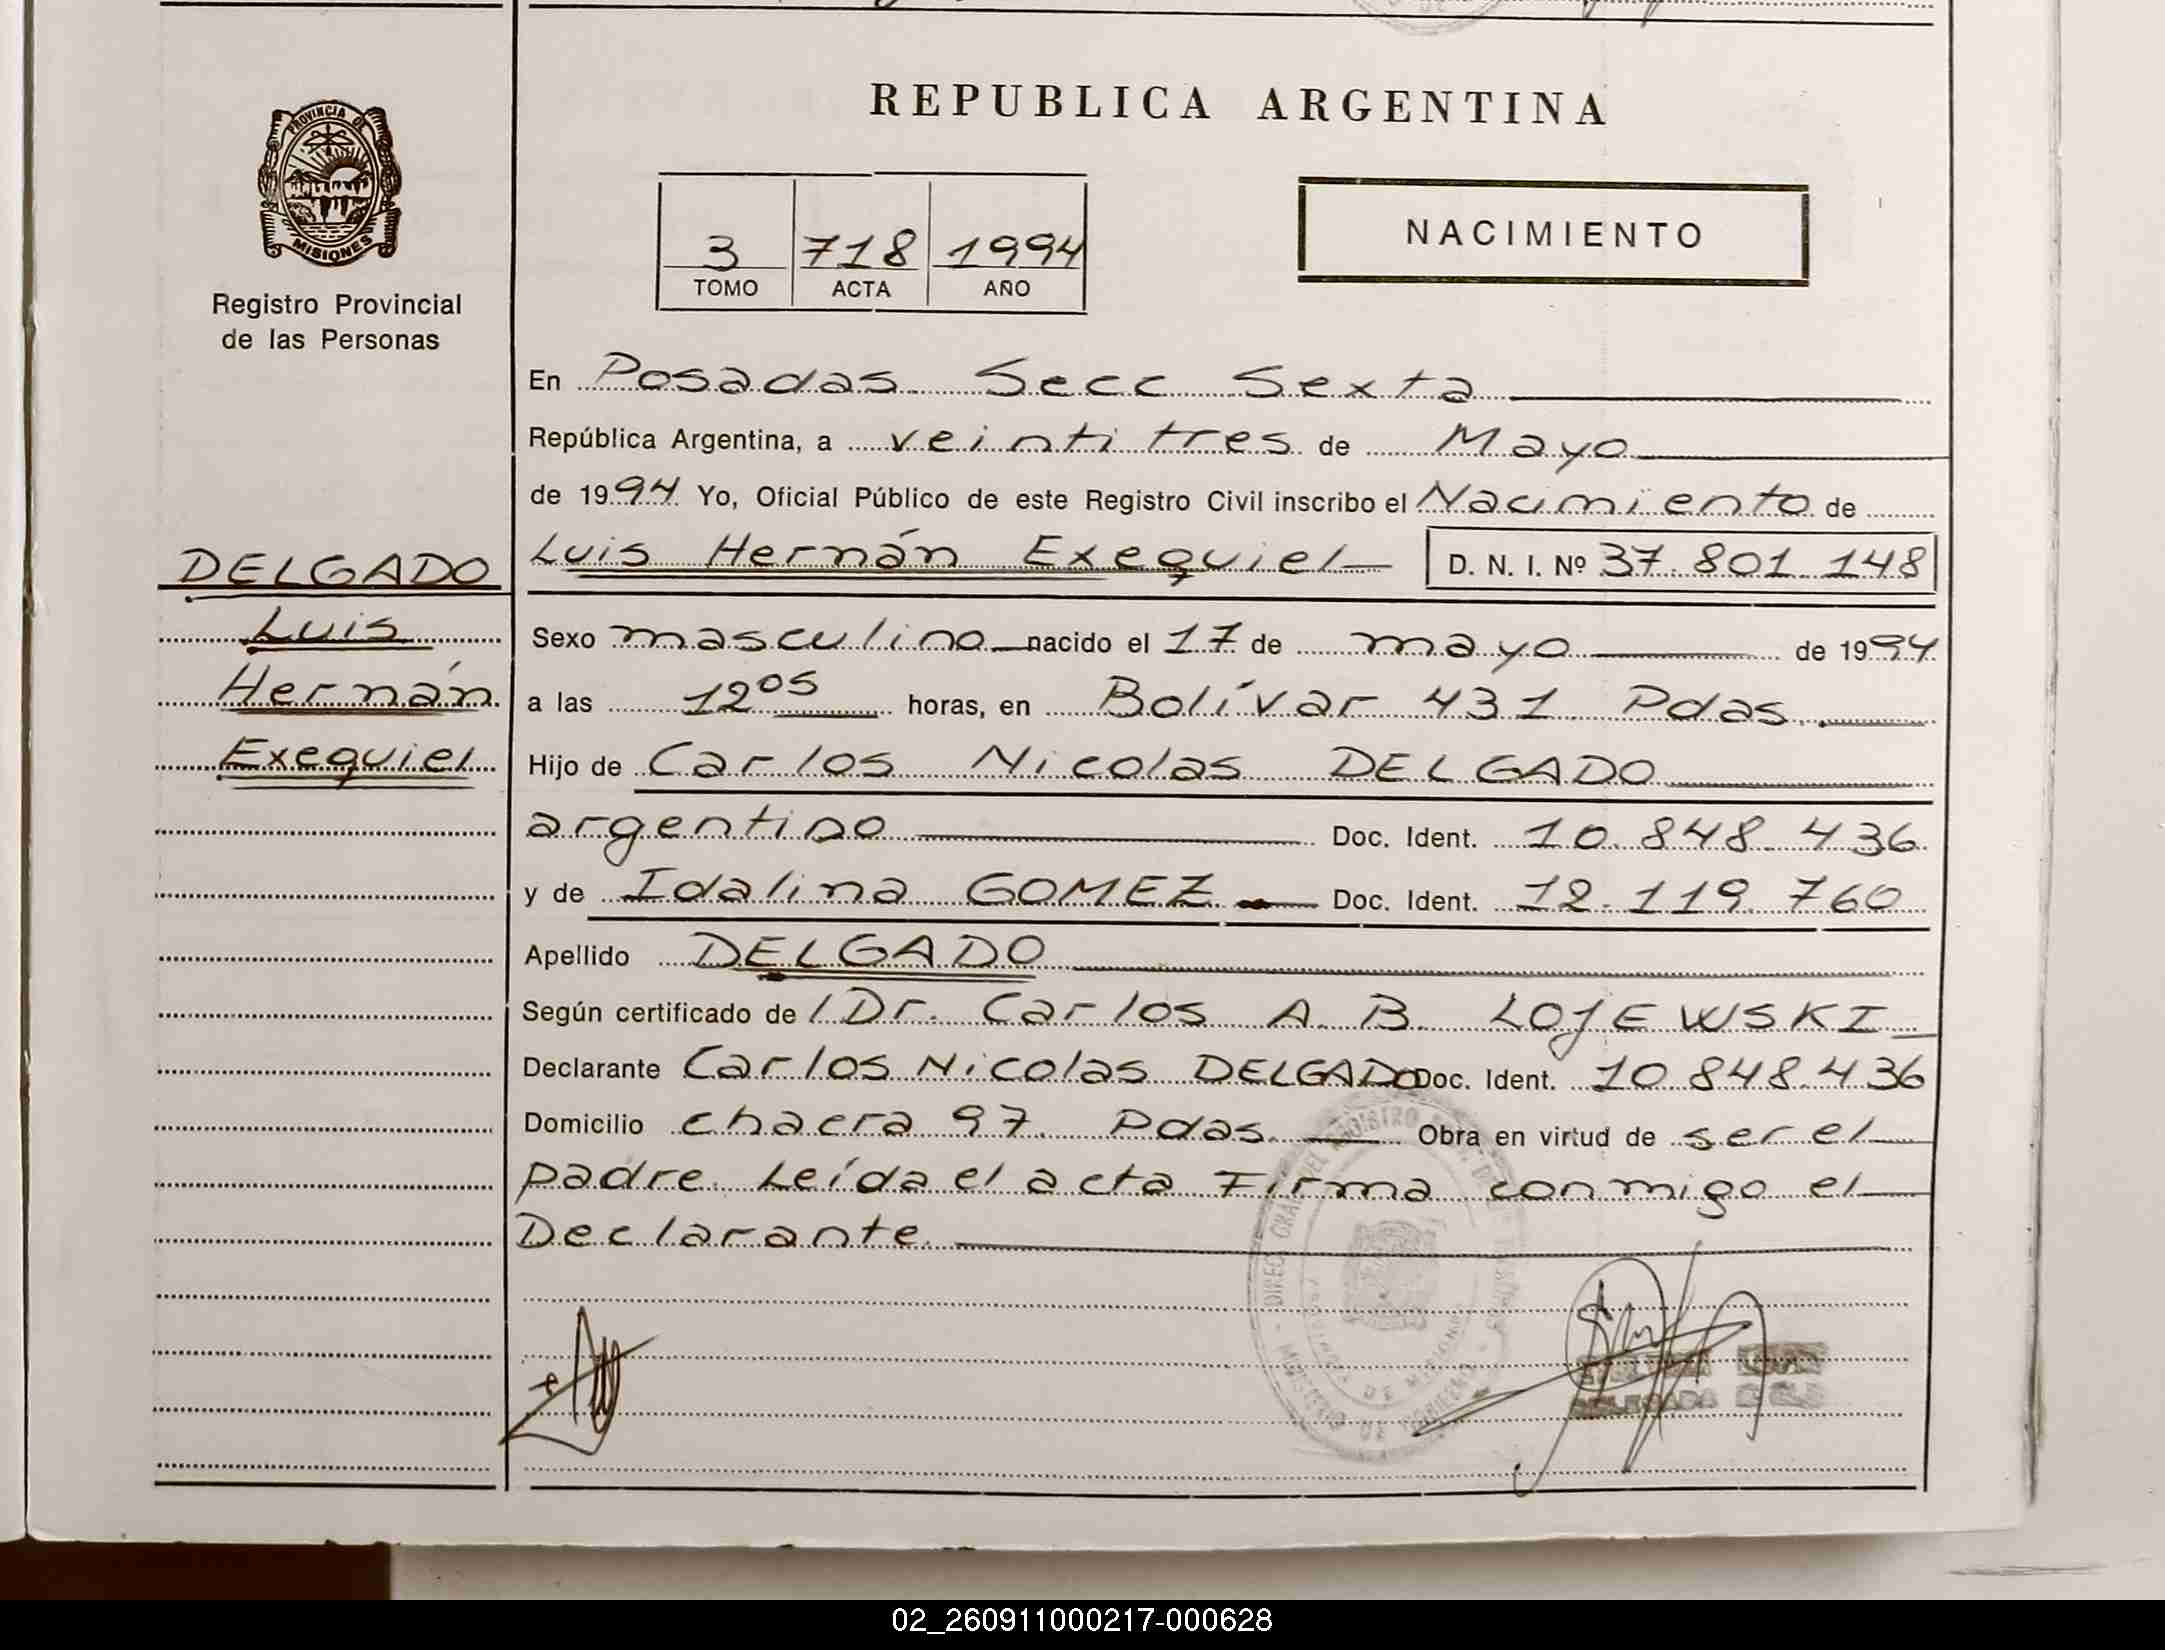 REPUBLICA ARGENTINA
PROVINCIA DE
MISIONES
Registro Provincial
de las Personas
3 718 1994
TOMO ACTA AÑO
NACIMIENTO
En Posadas Secc Sexta
República Argentina, a veintitres de Mayo
de 1994 Yo, Oficial Público de este Registro Civil inscribo el Nacimiento de
DELGADO
Luis
Hernán
Exequiel
Luis Hernán Exequiel D. N. I. Nº 37.801.148
Sexo masculino nacido el 17 de mayo de 1994
a las 12 05 horas, en Bolívar 431 Pdas.
Hijo de Carlos Nicolas DELGADO
argentino Doc. Ident. 10.848.436
y de Idalina GOMEZ Doc. Ident. 12.119.760
Apellido DELGADO
Según certificado de / Dr. Carlos A. B. LOJEWSKI
Declarante Carlos Nicolas DELGADO Doc. Ident. 10.848.436
Domicilio chacra 97. Pdas. Obra en virtud de ser el
padre. Leída el acta Firma conmigo el
Declarante.
02_260911000217-000628